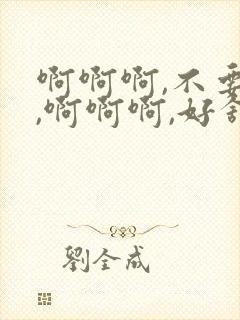 啊啊啊,不要
,啊啊啊,好舒
劉全成